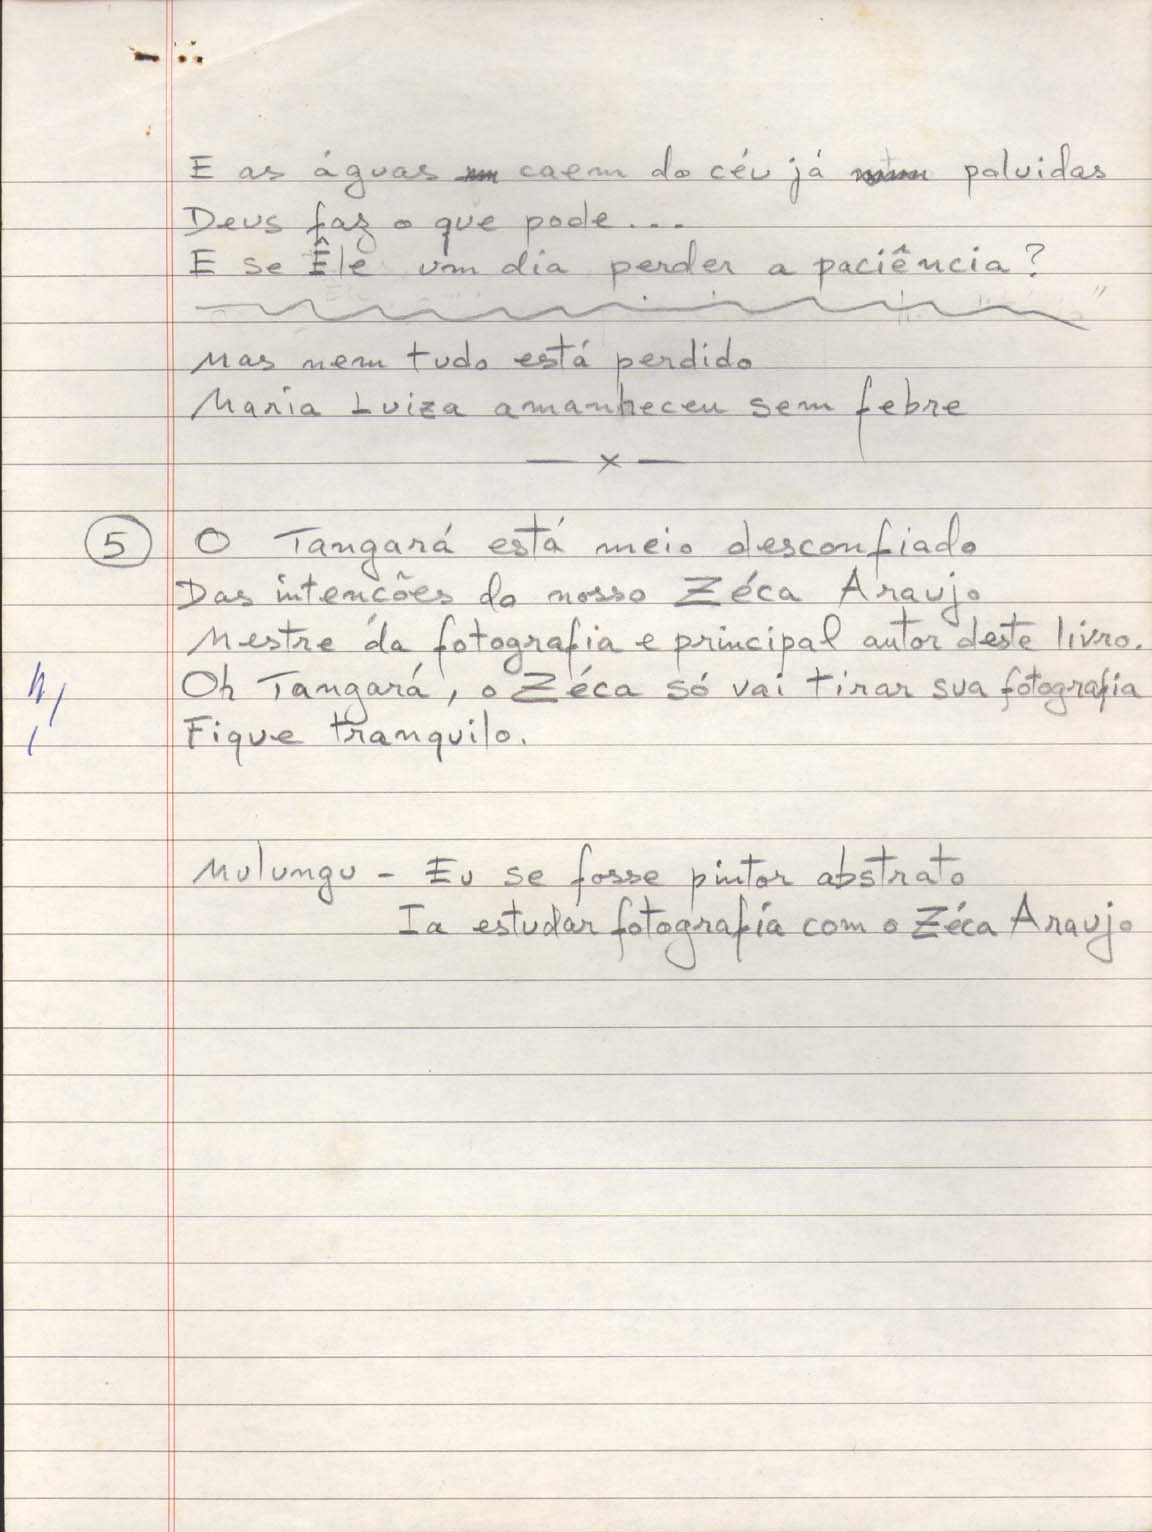 E as águas caem do céu já poluidas
Deus faz o que pode...
E se Êle um dia perder a paciência?
Mas nem tudo está perdido
Maria Luiza amanheceu sem febre
— x —
5 O Tangará está meio desconfiado
Das intencões do nosso Zéca Araujo
Mestre da fotografia e principal autor deste livro.
Oh Tangará, o Zéca só vai tirar sua fotografia
Fique tranquilo.
Mulungu - Eu se fosse pintor abstrato
Ia estudar fotografia com o Zéca Araujo